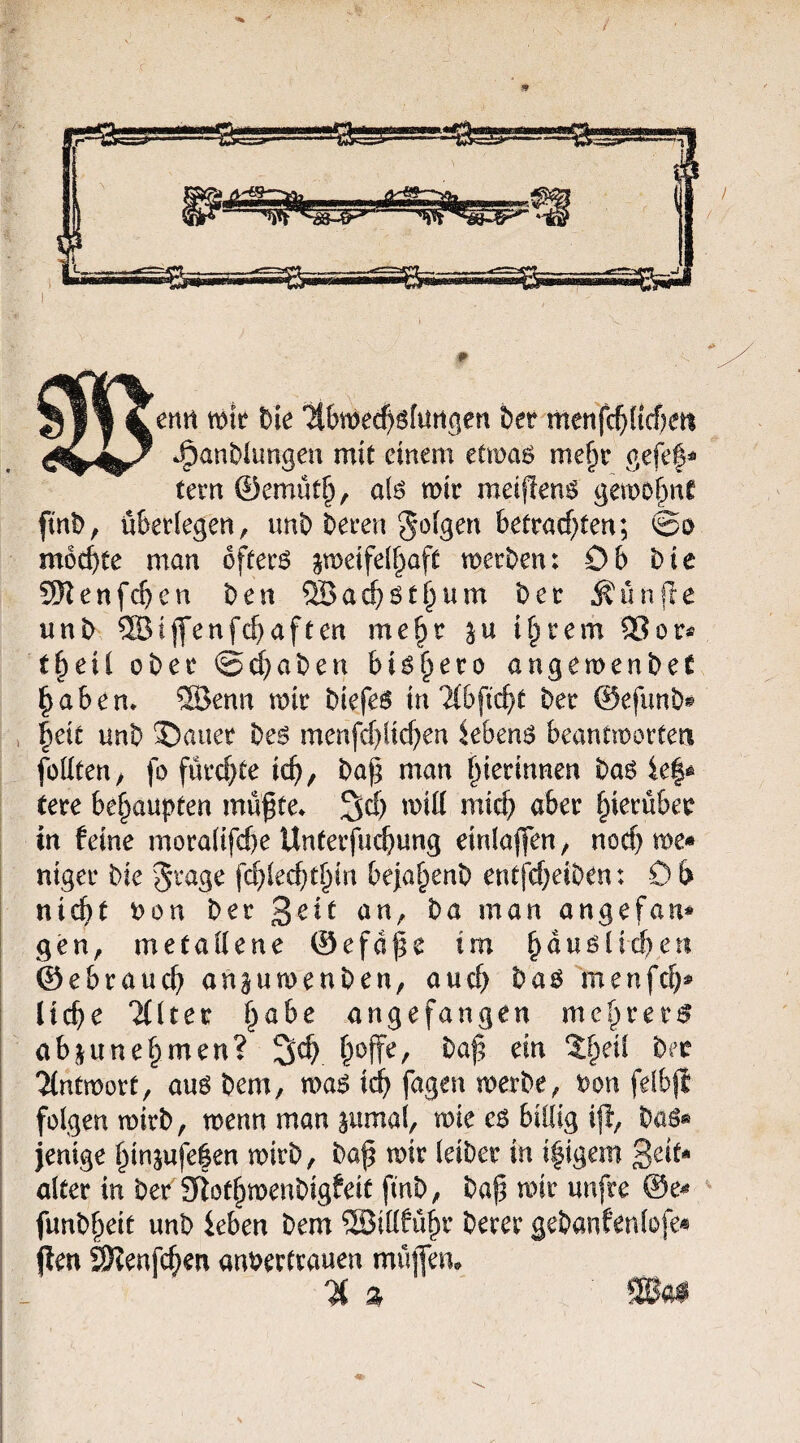 Wenn wir die Abwechslungen der menschlichen
Handlungen mit einem etwas mehr gesetz-
tern Gemüth, als wir meistens gewohnt
sind, überlegen, und deren Folgen betrachten; So
möchte man öfters zweifelhaft werden: Ob die
Menschen den Wachsthum der Künste
und Wissenschaften mehr zu ihrem Vor-
theil oder Schaden bishero angewendet
haben. Wenn wir dieses in Absicht der Gesund-
heit und Dauer des menschlichen Lebens beantworten
sollten, so fürchte ich, daß man hierinnen das letz-
tere behaupten müßte. Ich will mich aber hierüber
in keine moralische Untersuchung einlassen, noch we-
niger die Frage schlechthin bejahend entscheiden: Ob
nicht von der Zeit an, da man angefan-
gen, metallene Gefäße im häuslichen
Gebrauch anzuwenden, auch das mensch-
liche Alter habe angefangen mehrers
abzunehmen? Ich hoffe, daß ein Theil der
Antwort, aus dem, was ich sagen werde, von selbst
folgen wird, wenn man zumal, wie es billig ist, das-
jenige hinzusetzen wird, daß wir leider in itzigem Zeit-
alter in der Nothwendigkeit sind, daß wir unsre Ge-
sundheit und Leben dem Willkühr derer gedankenlose-
sten Menschen anvertrauen müssen.
A 2 Was